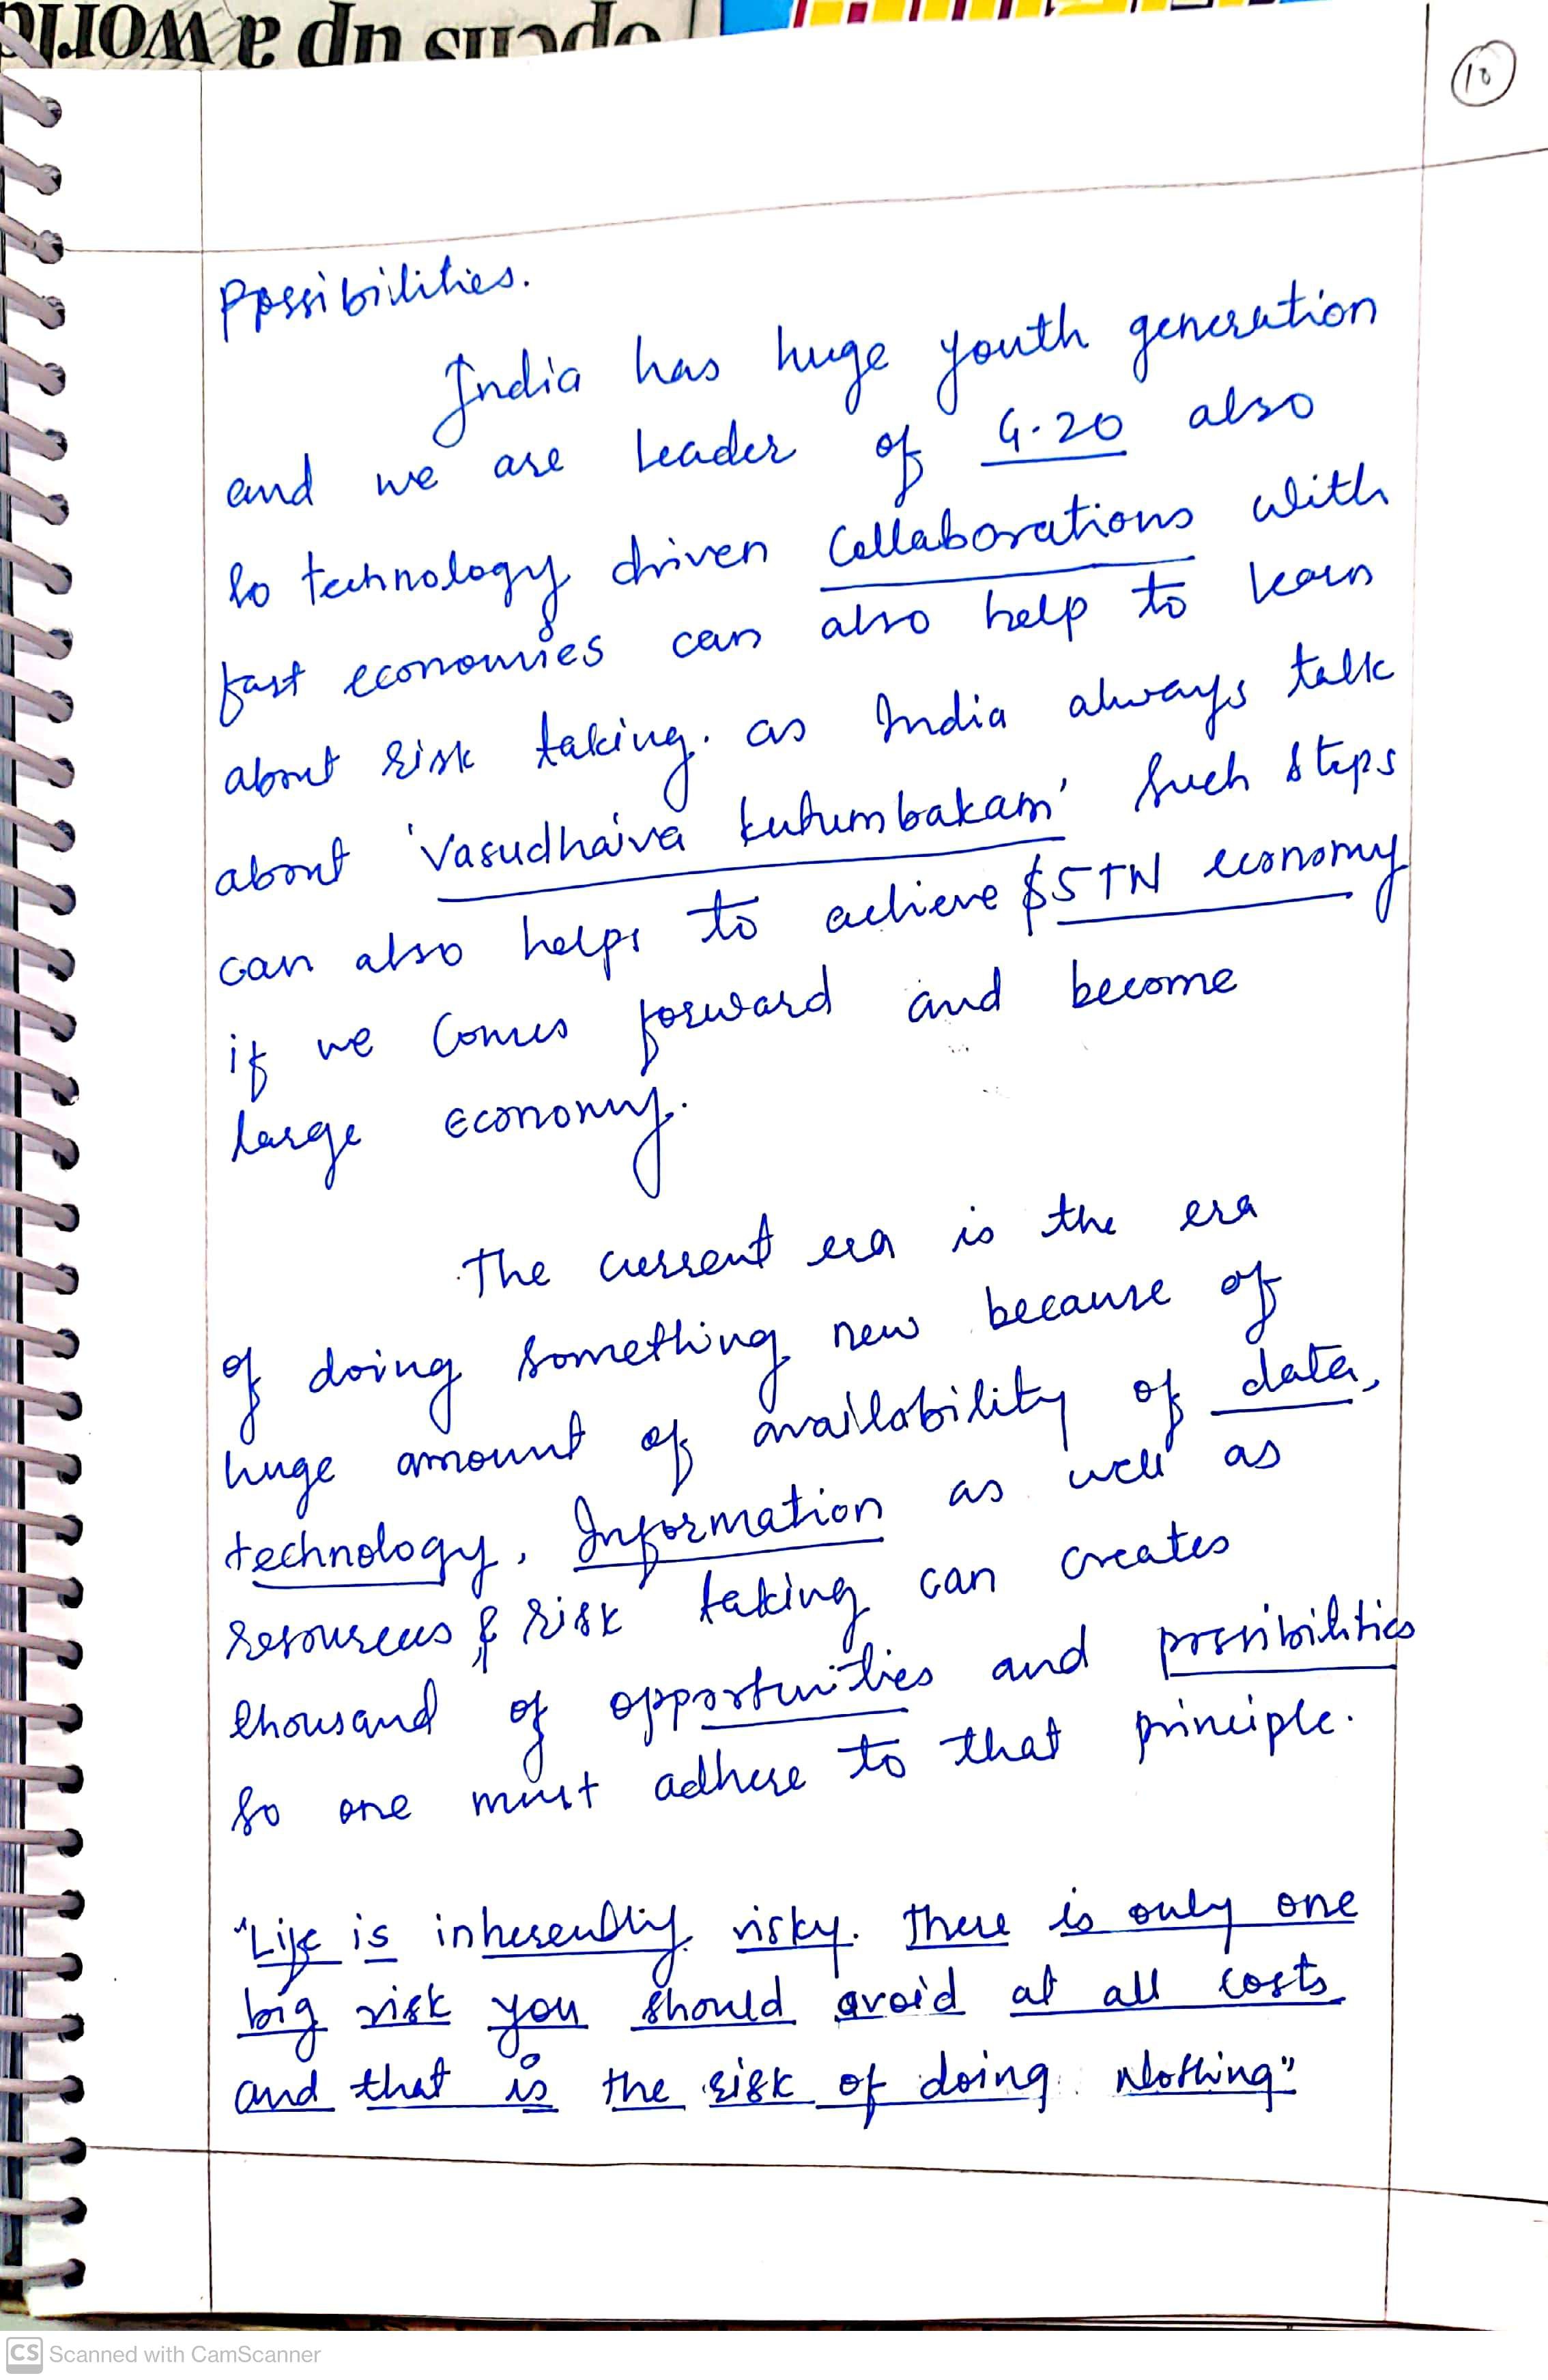 opens up a world
10
Possibilities.
India has huge youth generation
and we are leader of G.20 also
so technology driven Collaborations with
fast economies can also help to learn
about risk taking. as India always talk
about 'Vasudhaiva kutumbakam' such steps
can also helps to achieve $5TN economy
if we comes forward and become
large economy.
The current era is the era
of doing something new because of
huge amount of availability of data,
technology, Information as well as
resources & risk taking can creates
thousand of opportunities and possibilities
so one must adhere to that principle.
"Life is inherently risky. There is only one
big risk you should avoid at all costs
and that is the risk of doing Nothing"
CS Scanned with CamScanner